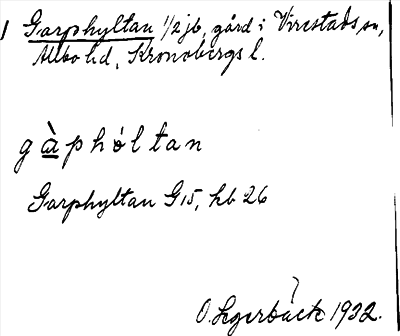 1 Garphyltan 1/2 jb, gård i Virestads sn,
Allbo hd, Kronobergs l.
gàphóltan
Garphyltan G 15, hb 26
O. Legerbäck 1932.